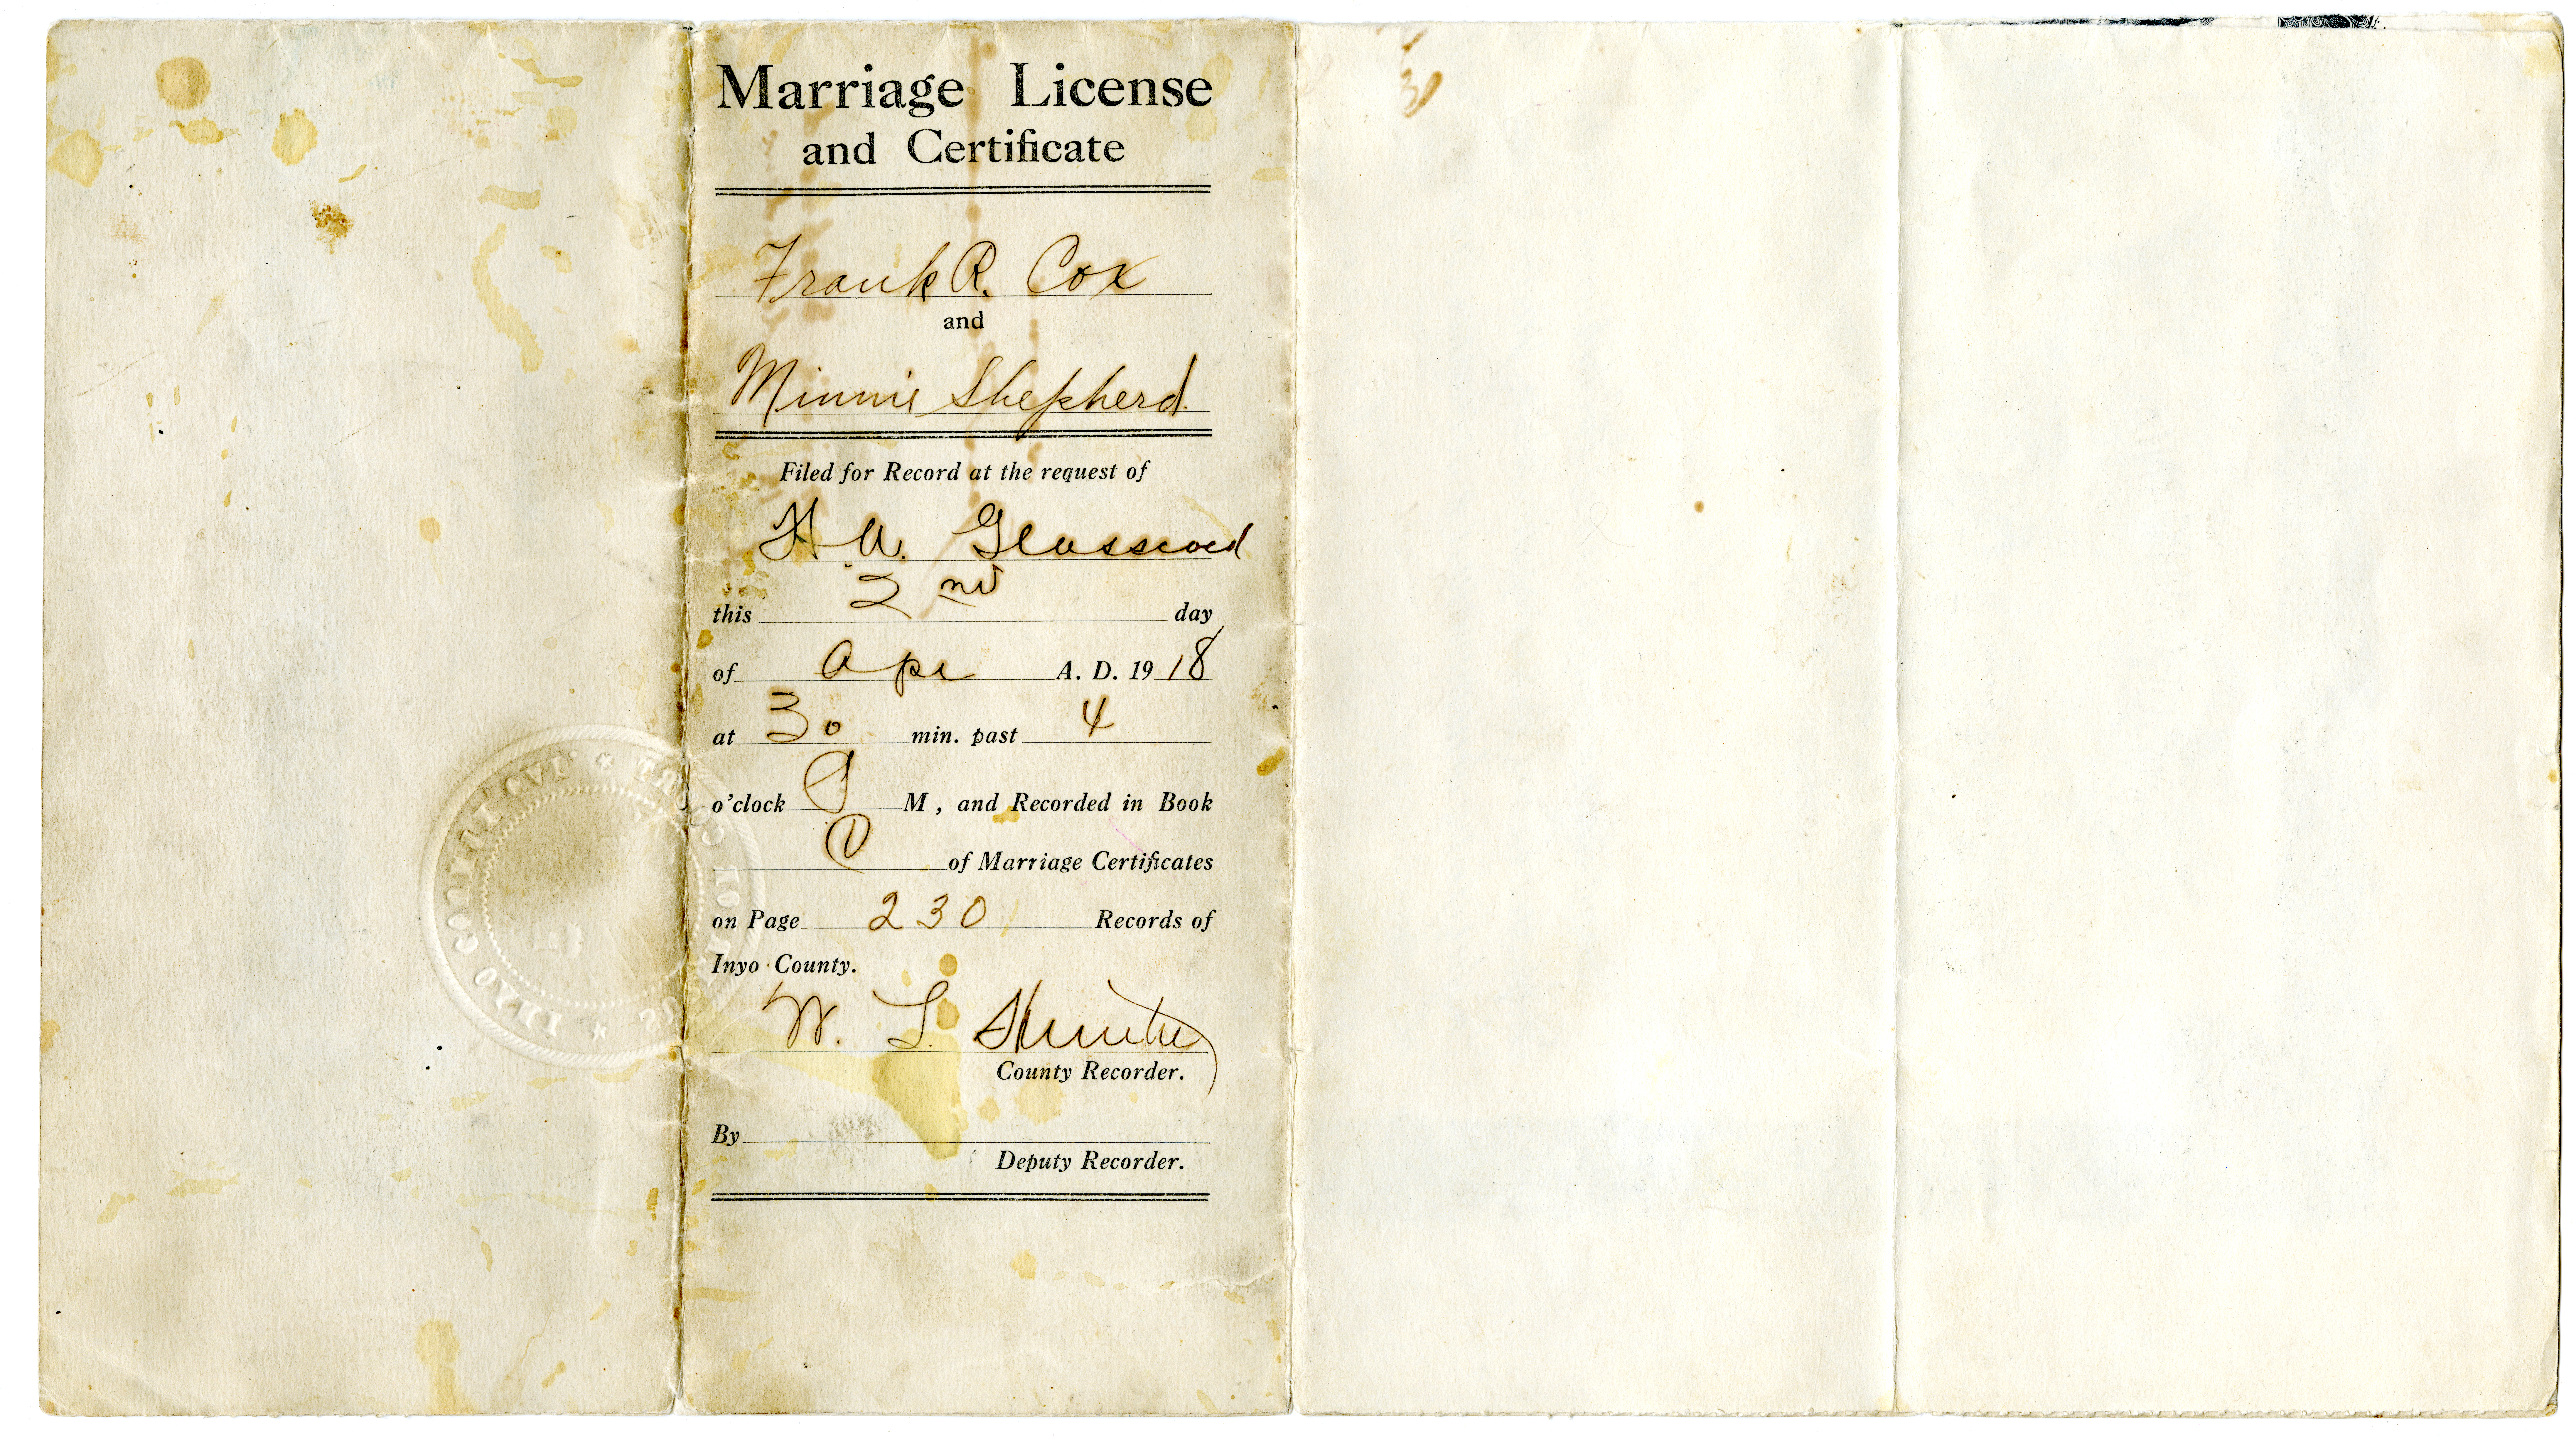 Marriage License
and Certificate
Frank R. Cox
and
Minnie Shepherd
Filed for Record at the request of
H A.
this 2nd day
of Apr A. D. 1918
at 30 min. past 4
o'clock P M, and Recorded in Book
D of Marriage Certificates
on Page 230 Records of
Inyo County.
W. L. Hunter
County Recorder.
By
Deputy Recorder.
INYO COUNTY